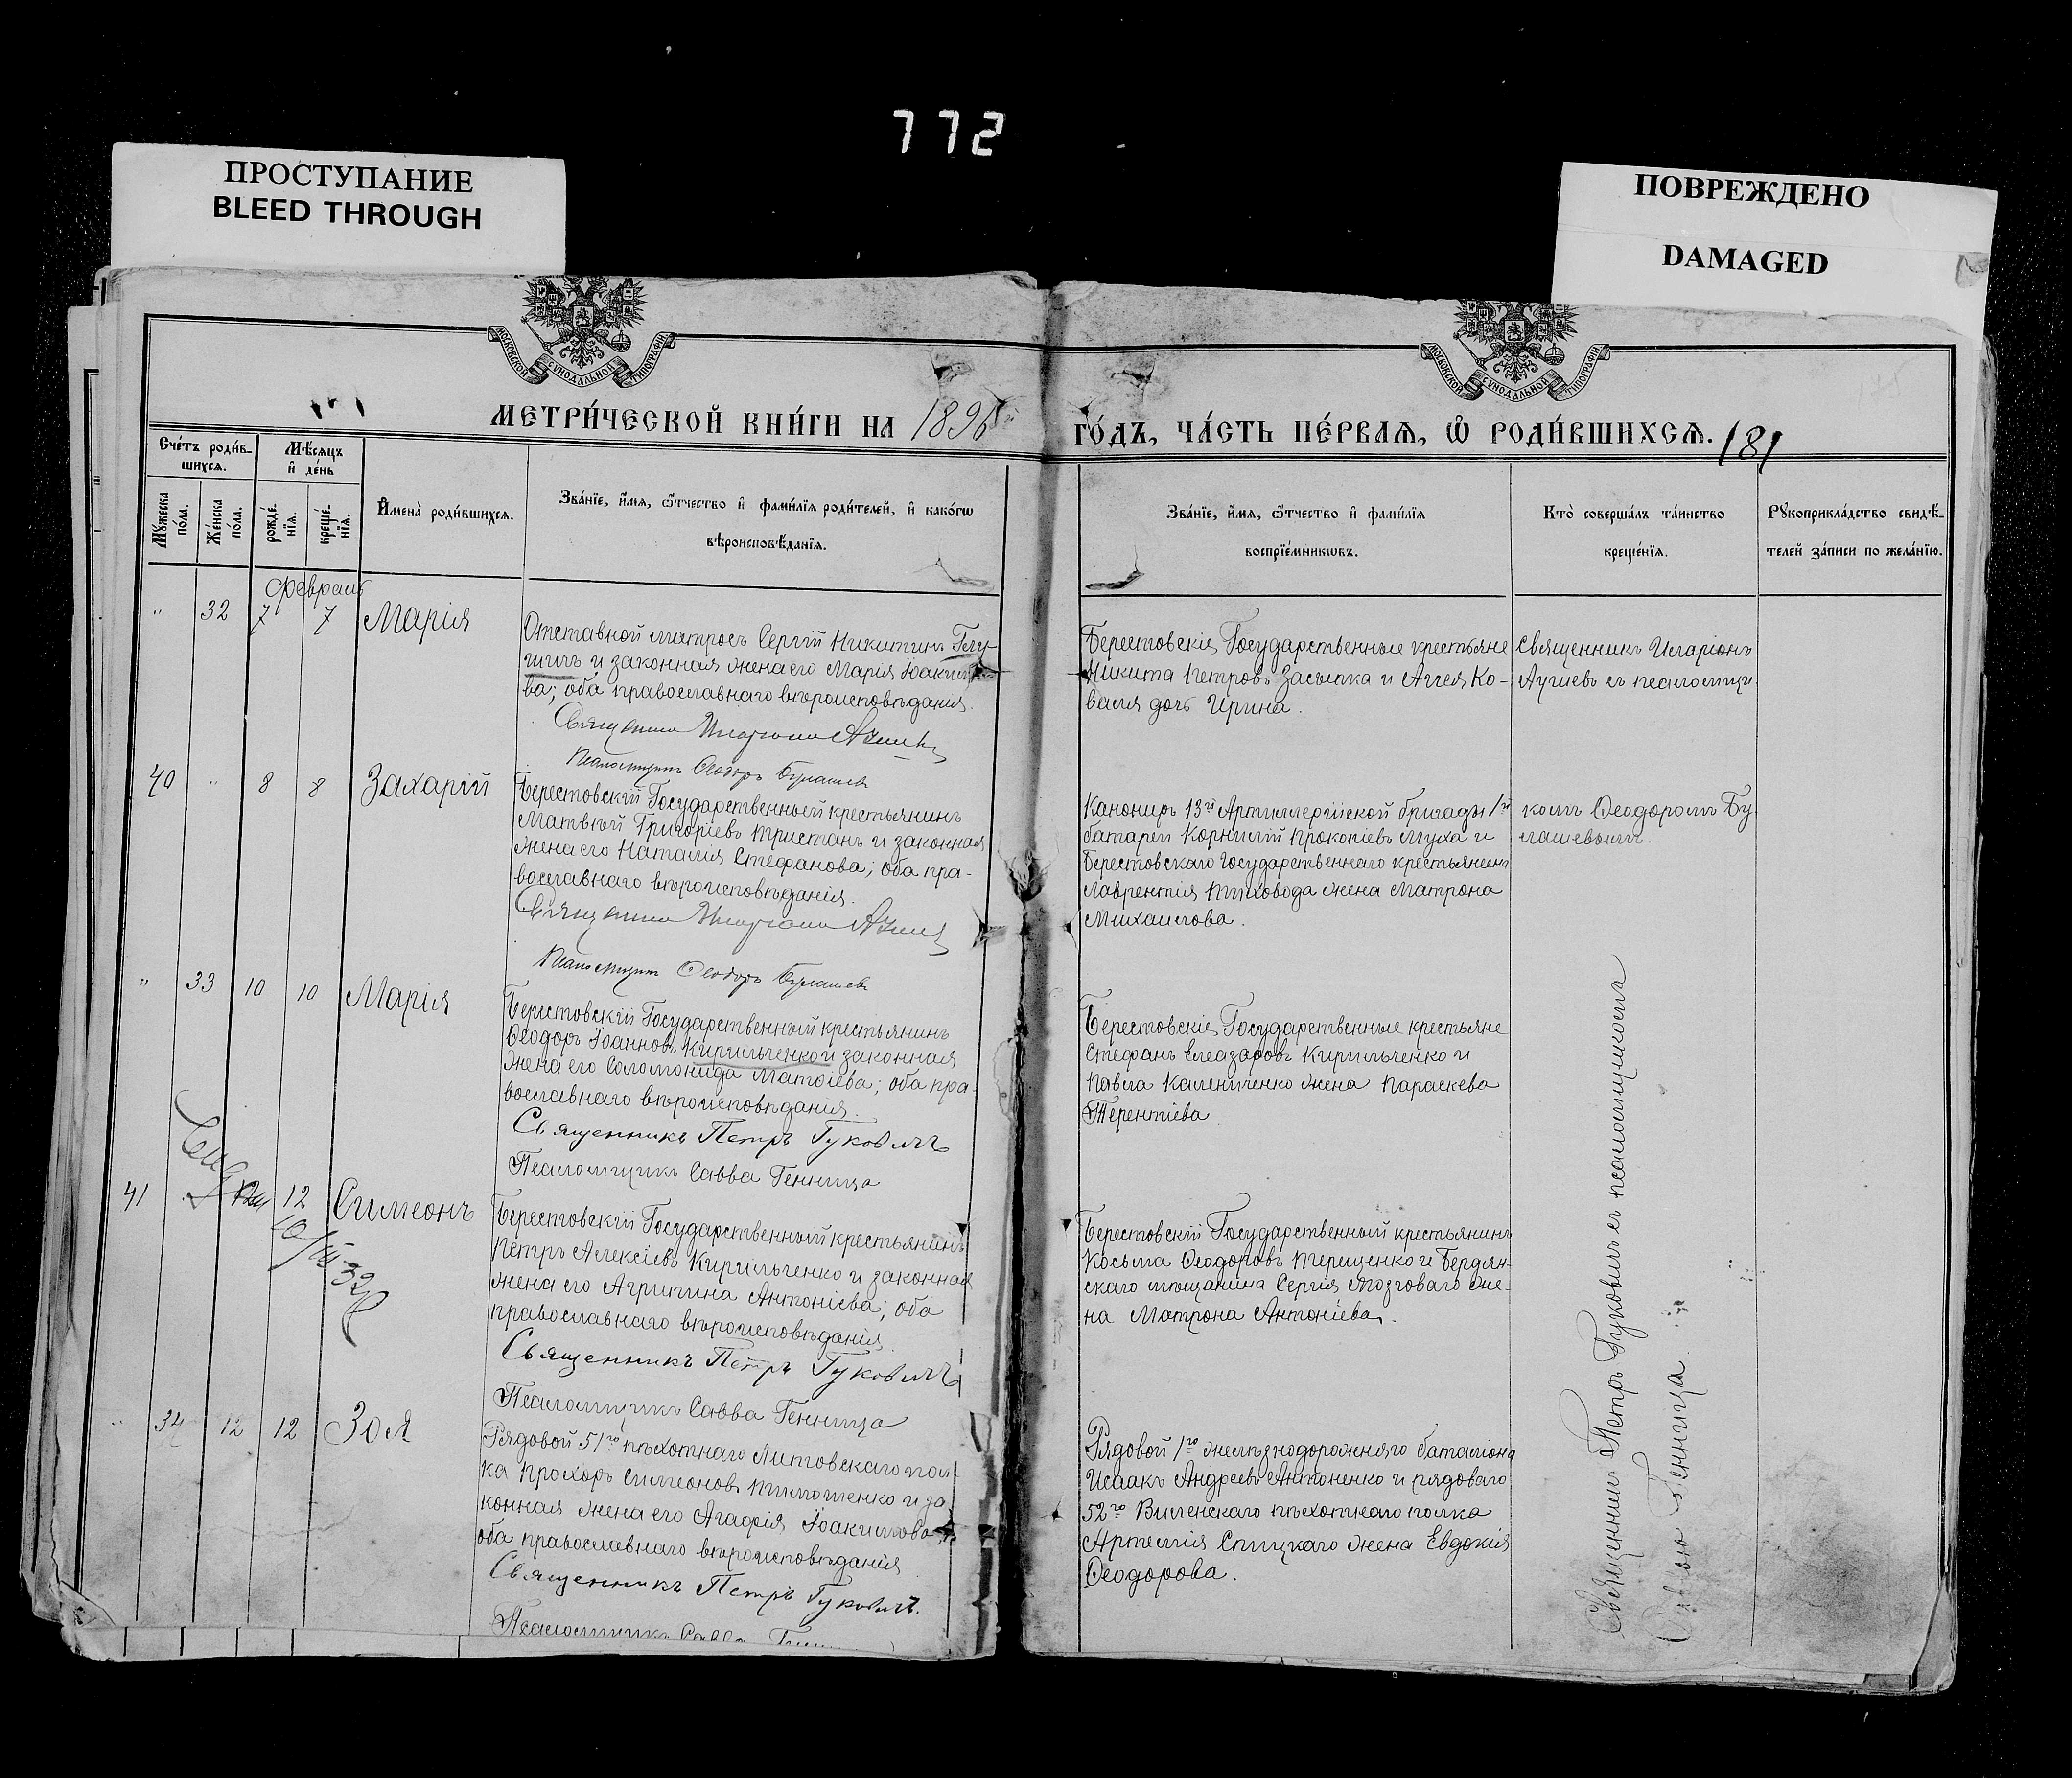 772
ПРОСТУПАНИЕ
BLEED THROUGH
ПОВРЕЖДЕНО
DAMAGED
МОСКОВСКОЙ СѴНОДАЛЬНОЙ ТИПОГРАФІИ
МОСКОВСКОЙ СѴНОДАЛЬНОЙ ТИПОГРАФІИ
МЕТРИ́ЧЕСКОЙ КНИ́ГИ НА 1896й ГО́ДЪ, ЧА́СТЬ ПЕ́РВАЯ, Ѡ РОДИ́ВШИХСЯ. 181
Сче́тъ роди́в-
шихся.
Мѣ́сяцъ
и де́нь
Мꙋжеска
по́ла.
Же́нска
по́ла.
рожде́-
нїя.
креще́-
нїя.
И́мена роди́вшихся.
Зва́нїе, и́мя, ѻ́тчество и фами́лїя роди́телей, и како́гѡ
вѣроисповѣ́данїя.
Зва́нїе, и́мя, ѻ́тчество и фами́лїя
воспрїе́мникѡвъ.
Кто̀ соверша́лъ та́инство
креще́нїя.
Рꙋкоприкла́дство свидѣ́-
телей за́писи по жела́нїю.
Февраль
" 32 7 7 Марія
Отставной матросъ Сергій Никитинъ Глу-
шичъ и законная жена его Марія Іоакимо-
ва; оба православнаго вѣроисповѣданія.
Священникъ Иларіонъ
Псаломщикъ Ѳеодоръ Булашевъ
Берестовскіе Государственные крестьяне
Никита Петровъ Засыпка и Аггея Ко-
валя дочь Ирина.
Священникъ Иларіонъ
съ псаломщи
40 " 8 8 Захарій
Берестовскій Государственный крестьянинъ
Матвѣй Григоріевъ Тристанъ и законная
жена его Наталія Стефанова; оба пра-
вославнаго вѣроисповѣданія.
Священникъ Иларіонъ
Псаломщикъ Ѳеодоръ Булашевъ
Канониръ 13й Артиллерійской бригады 1й
батареи Корнилій Прокопіевъ Муха и
Берестовскаго Государственнаго крестьянина
Лаврентія Тиховода жена Матрона
Михаилова.
комъ Ѳеодоромъ Бу
лашевымъ.
" 33 10 10 Марія
Берестовскій Государственный крестьянинъ
Ѳеодоръ Іоанновъ Кирильченко и законная
жена его Соломонида Матѳіева; оба пра-
вославнаго вѣроисповѣданія.
Священникъ Петръ Гуковичъ
Псаломщикъ Савва Генница
Берестовскіе Государственные крестьяне
Стефанъ Елеазаровъ Кирильченко и
Павла Каленченко жена Параскева
Терентіева
41 12 Симеонъ
10/III 32
Берестовскій Государственный крестьянинъ
Петръ Алексіевъ Кирильченко и законная
жена его Агрипина Антоніева; оба
православнаго вѣроисповѣданія.
Священникъ Петръ Гуковичъ
Псаломщикъ Савва Генница
Берестовскій Государственный крестьянинъ
Косьма Ѳеодоровъ Терещенко и Бердян-
скаго мѣщанина Сергія Мозговаго же-
на Матрона Антоніева.
" 34 12 12 Зоя
Рядовой 51го пѣхотнаго Литовскаго пол-
ка Прохоръ Симеоновъ Тимошенко и за-
конная жена его Агафія Іоакимова
оба православнаго вѣроисповѣданія
Священникъ Петръ Гуковичъ.
Псаломщикъ Савва
Рядовой 1го желѣзнодорожняго баталіона
Исаакъ Андреевъ Антоненко и рядоваго
52го Виленскаго пѣхотнаго полка
Артемія Спицкаго жена Евдокія
Ѳеодорова.
Священникъ Петръ Гуковичъ съ псаломщикомъ
Саввою Генница.